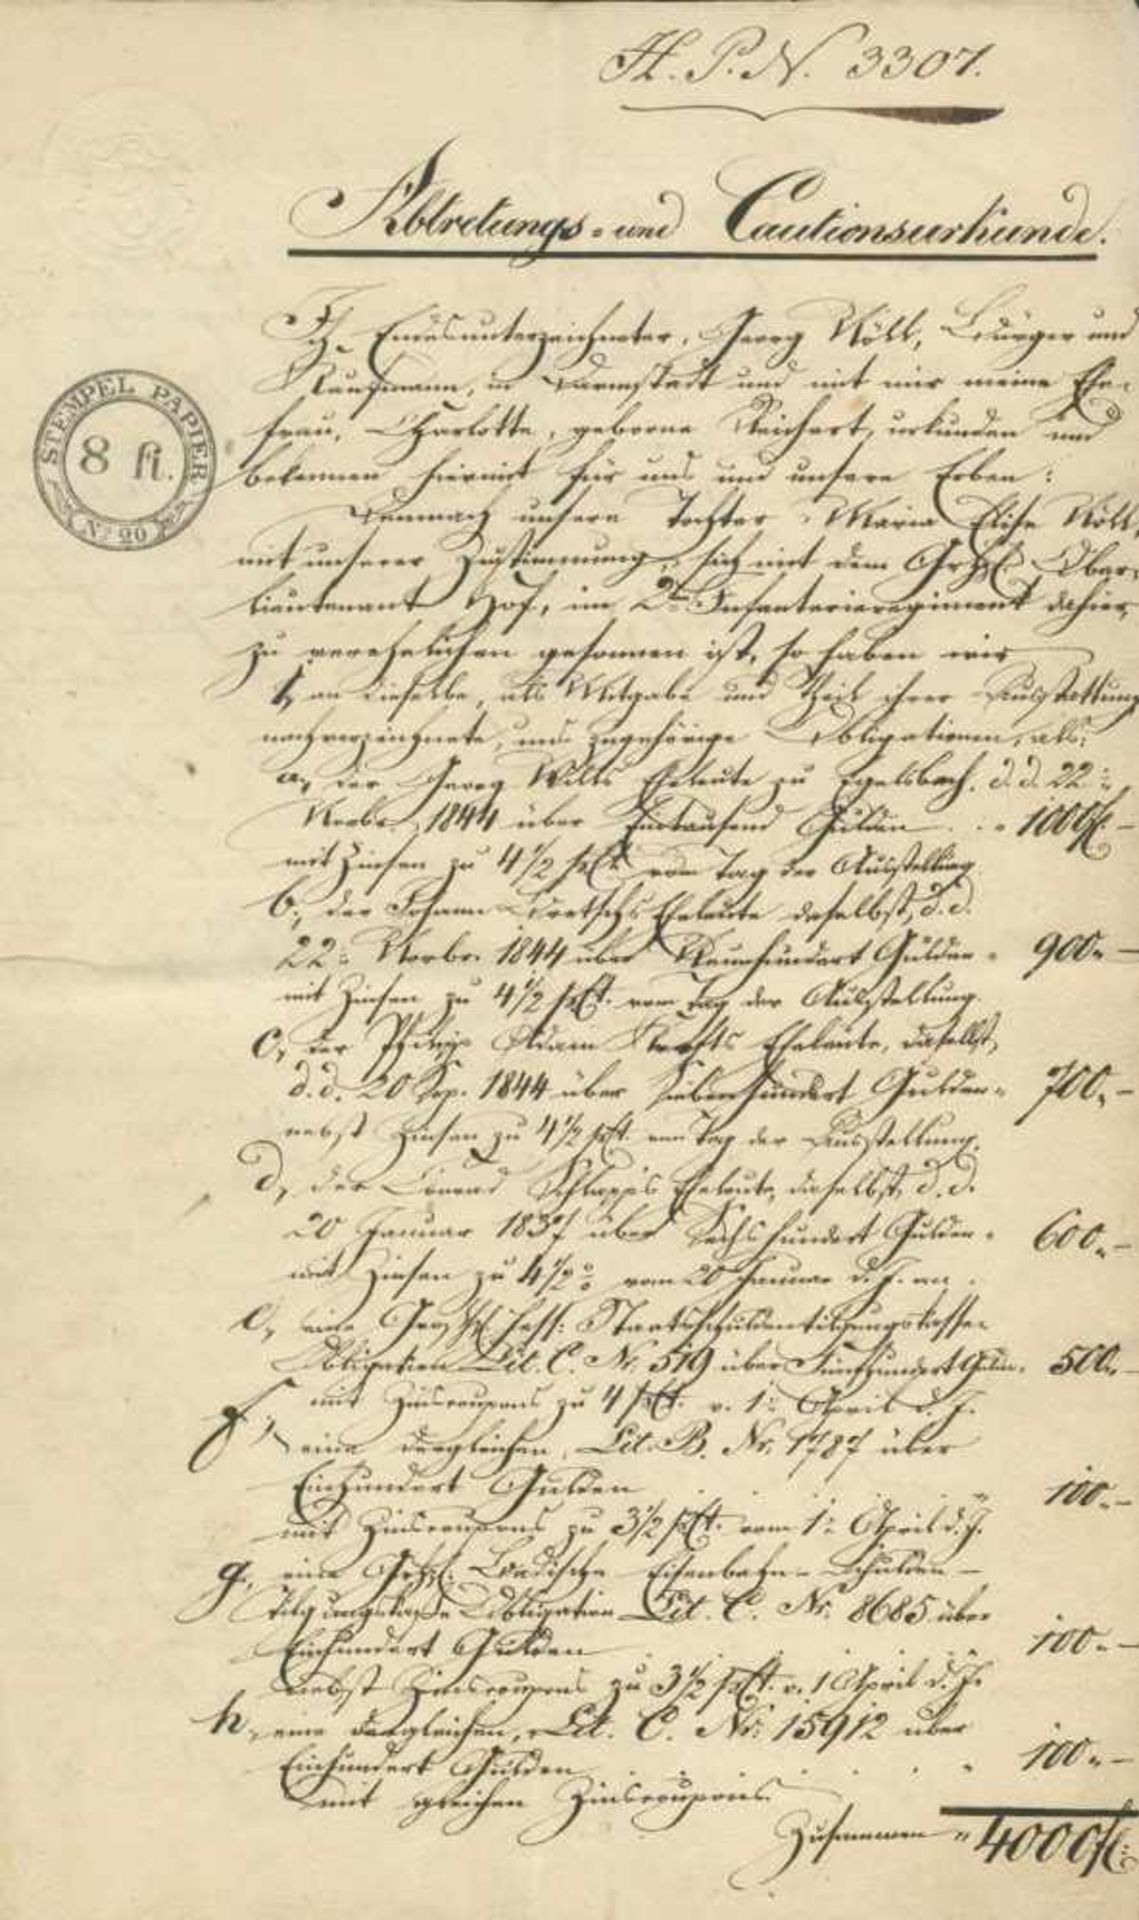 H. P. N. 3307.
Abtretungs- und Cautionsurkunde.
STEMPEL PAPIER
8 fl.
No 20
Ich Endesunterzeichneter, Georg Nöll, Bürger und
Kaufmann, in Darmstadt und mit mir meine Ehe-
frau, Charlotte, geborne Reichert, urkunden und
bekennen hiermit für uns und unsere Erben:
Demnach unsere Tochter, Maria Elise Nöll,
mit unserer Zustimmung, sich mit dem Grhzl. Ober-
lieutenant Hof, im 2ten Infanterieregiment dahier,
zu verehelichen gesonnen ist, so haben wir
1, an dieselbe, als Mitgabe und Theil ihrer Ausstattung
nachverzeichnete, uns zugehörige Obligationen, als:
a, der Georg Eheleute zu Egelsbach, d. d. 22=
Novbr. 1844 über Eintausend Gulden . . " 1000 fl. —
mit Zinsen zu 4 1/2 pCt. vom Tag der Ausstellung
b, der Johann Eheleute daselbst, d. d.
22= Novbr. 1844 über Neunhundert Gulden " 900 " —
mit Zinsen zu 4 1/2 pCt. vom Tag der Ausstellung.
c, der Philipp Adam Eheleute, daselbst,
d. d. 20 Sep. 1844 über Siebenhundert Gulden " 700 " —
nebst Zinsen zu 4 1/2 pCt. vom Tag der Ausstellung.
d, der Conrad Schlapp's Eheleute, daselbst, d. d.
20 Januar 1837 über Sechshundert Gulden " 600 " —
mit Zinsen zu 4 1/2 % vom 20 Januar d. J. an.
e, eine Großhzl. Hess: Staatsschuldentilgungskasse-
Obligation Lit. C. Nr. 519 über Fünfhundert Guld. " 500 " —
mit Zinscoupons zu 4 pCt. v. 1= April d. J.
f, eine dergleichen, Lit. B. Nr. 1787 über
Einhundert Gulden 100 " —
mit Zinscoupons zu 3 1/2 pCt. vom 1= April d. J.
g, eine Grhzl. Badische Eisenbahn-Schulden-
Tilgungskasse Obligation Lit. C. Nr. 8685 über
Einhundert Gulden 100 " —
nebst Zinscoupons zu 3 1/2 pCt. v. 1 April d. J.
h, eine dergleichen, Lit. C. Nr. 15912 über
Einhundert Gulden . . . . " 100 " —
mit gleichen Zinscoupons.
Zusammen " 4000 fl: